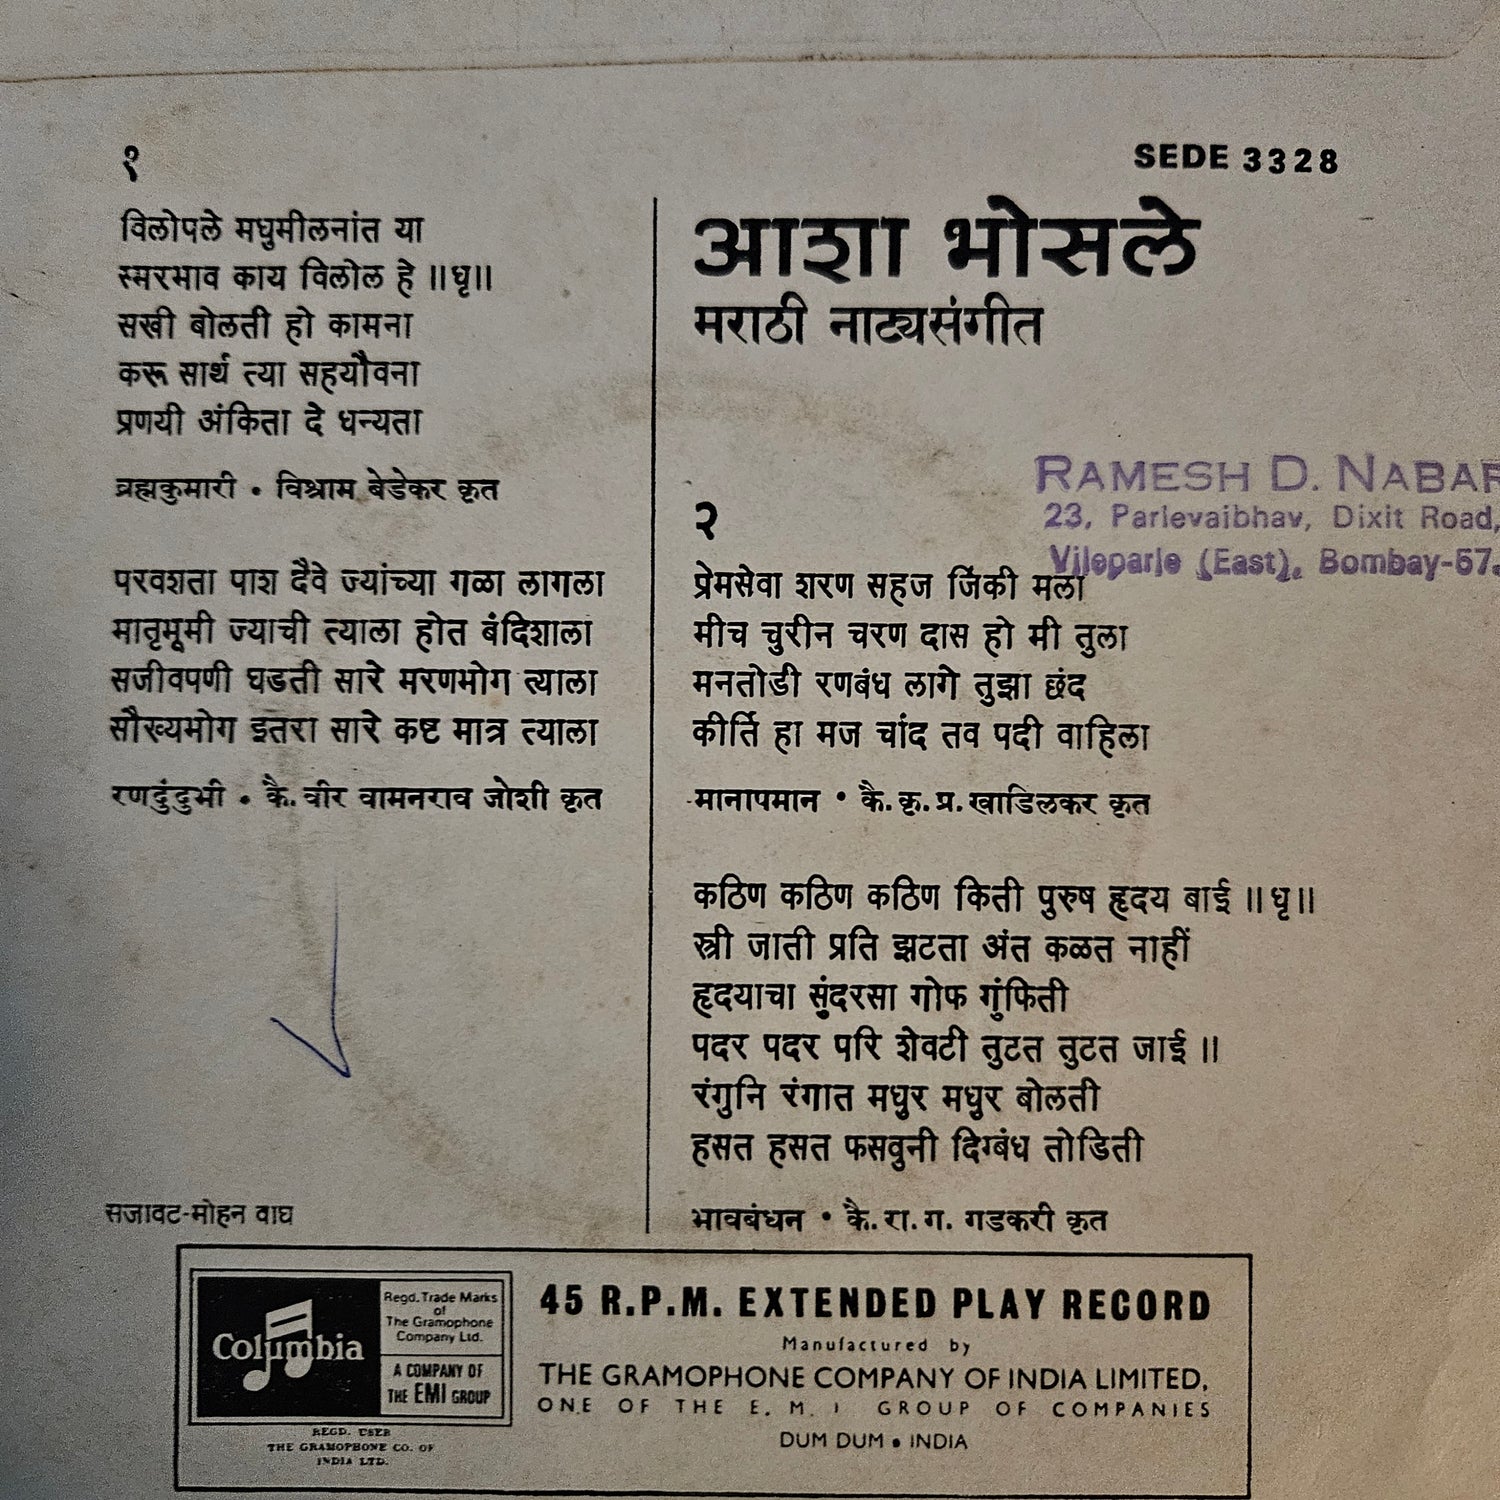 SEDE 3328
आशा भोसले
मराठी नाट्यसंगीत
१
विलोपले मधुमीलनांत या
स्मरभाव काय विलोल हे ॥धृ॥
सखी बोलती हो कामना
करू सार्थ त्या सहयौवना
प्रणयी अंकिता दे धन्यता
ब्रह्मकुमारी • विश्राम बेडेकर कृत
परवशता पाश दैवे ज्यांच्या गळा लागला
मातृभूमी ज्याची त्याला होत बंदिशाला
सजीवपणी घडती सारे मरणभोग त्याला
सौख्यभोग इतरा सारे कष्ट मात्र त्याला
रणदुंदुभी • कै. वीर वामनराव जोशी कृत
सजावट-मोहन वाघ
RAMESH D. NABAR
23, Parlevaibhav, Dixit Road,
Vileparle (East), Bombay-57.
२
प्रेमसेवा शरण सहज जिंकी मला
मीच चुरीन चरण दास हो मी तुला
मनतोडी रणबंध लागे तुझा छंद
कीर्ति हा मज चांद तव पदी वाहिला
मानापमान • कै. कृ. प्र. खाडिलकर कृत
कठिण कठिण कठिण किती पुरुष हृदय बाई ॥धृ॥
स्त्री जाती प्रति झटता अंत कळत नाहीं
हृदयाचा सुंदरसा गोफ गुंफिती
पदर पदर परि शेवटी तुटत तुटत जाई ॥
रंगुनि रंगात मधुर मधुर बोलती
हसत हसत फसवुनी दिग्बंध तोडिती
भावबंधन • कै. रा. ग. गडकरी कृत
Columbia
Regd. Trade Marks
of
The Gramophone
Company Ltd.
A COMPANY OF
THE EMI GROUP
REGD. USER
THE GRAMOPHONE CO. OF
INDIA LTD.
45 R.P.M. EXTENDED PLAY RECORD
Manufactured by
THE GRAMOPHONE COMPANY OF INDIA LIMITED,
ONE OF THE E. M. I GROUP OF COMPANIES
DUM DUM • INDIA